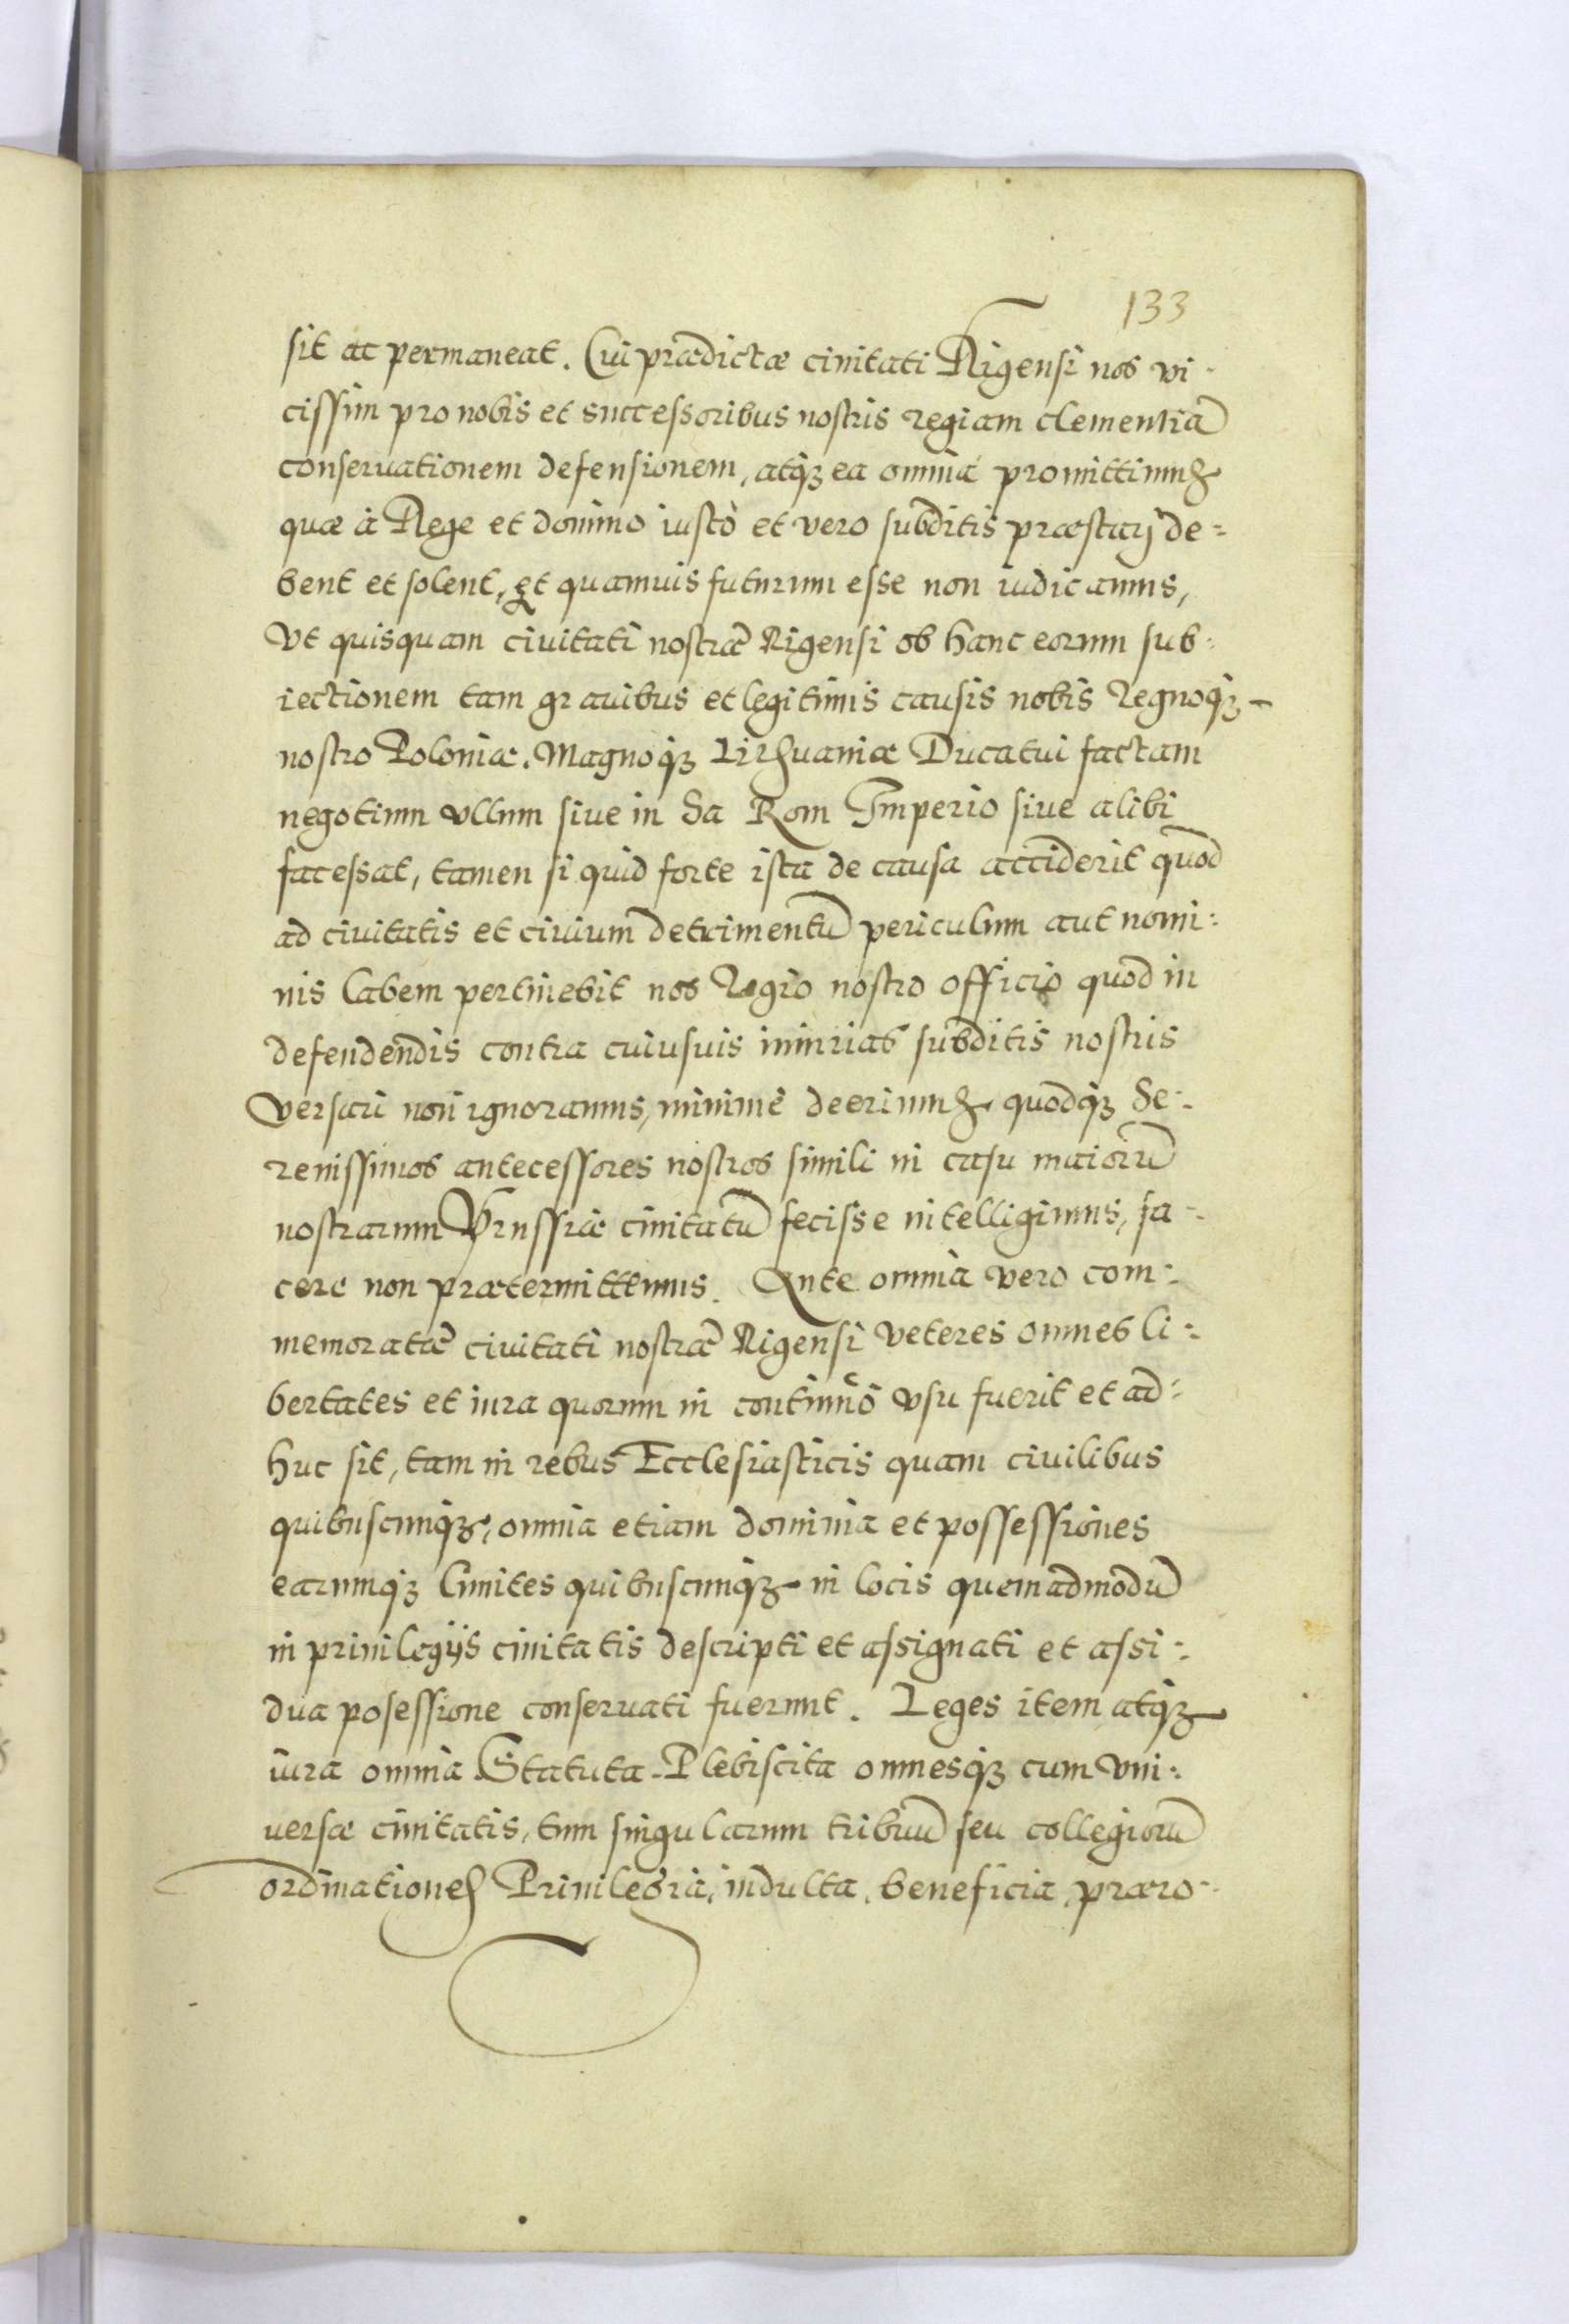 133
sit ac permaneat. Cui prædictæ civitati Rigensi nos vi-
cissim pro nobis et successoribus nostris regiam clementiā
conservationem defensionem, atqȝ ea omnia promittimus
quæ à Rege et domino iusto et vero subditis præstarj de=
bent et solent, Et quamvis futurum esse non iudicamus,
Vt quisquam civitati nostræ Rigensi ob hanc eorum sub-
iectionem tam gravibus et legitimis causis nobis Regnoqȝ
nostro Poloniæ. Magnoqȝ Lithuaniæ Ducatui factam
negotium vllum sive in Sa Rom Imperio sive alibi
facessat, tamen si quid forte ista de causa acciderit quod
ad civitatis et civium detrimentū periculum aut nomi-
nis labem pertinebit nos Regio nostro officio quod in
defendendis contra cuiusvis iniurias subditis nostris
versari non ignoramus, minimè deerimus quodqȝ Se-
renissimos antecessores nostros simili in casu maiorū
nostrarum Prussiæ civitatū fecisse intelligimus, fa-
cere non prætermittemus. Ante omnia vero com-
memoratæ civitati nostræ Rigensi veteres omnes li-
bertates et iura quorum in continuo vsu fuerit et ad-
huc sit, tam in rebus Ecclesiasticis quam civilibus
quibuscumqȝ, omnia etiam dominia et possessiones
earumqȝ limites quibuscumqȝ in locis quemadmodū
in privilegijs civitatis descripti et assignati et assi-
dua posessione conservati fuerunt. Leges item atqȝ
iura omnia Statuta Plebiscita omnesqȝ cum vni-
versæ civitatis, tum singularum tribuū seu collegiorū
ordinationes Privilegia, indulta, beneficia, præro-